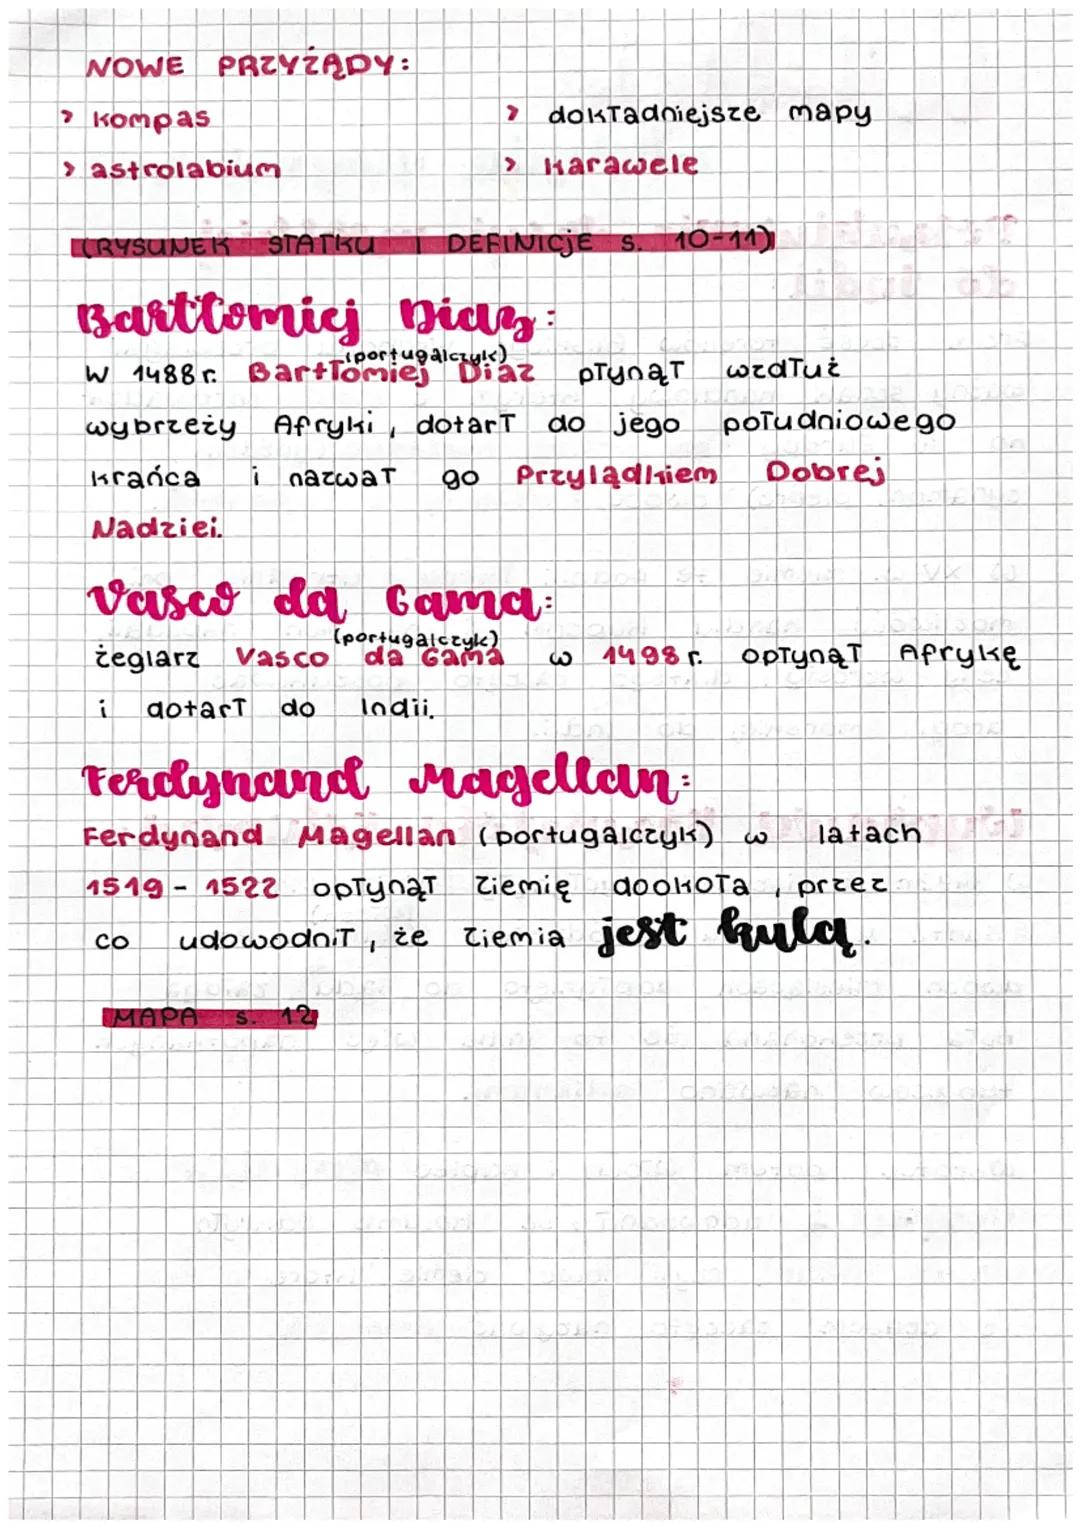 NOWE PRZYŻĄDY:
> kompas > dokładniejsze mapy
> astrolabium > karawele
(RYSUNEK STATKU I DEFINICJE s. 10-11)
Bartłomiej Diaz:
(portugalczyk)
W 1488 r. Bartłomiej Diaz płynął wzdłuż
wybrzeży Afryki, dotarł do jego południowego
krańca i nazwał go Przylądkiem Dobrej
Nadziei.
Vasco da Gama:
(portugalczyk)
żeglarz Vasco da Gama w 1498 r. opłynął Afrykę
i dotarł do Indii.
Ferdynand Magellan:
Ferdynand Magellan (portugalczyk) w latach
1519 - 1522 opłynął ziemię dookoła, przez
co udowodnił, że ziemia jest kulą.
MAPA s. 12